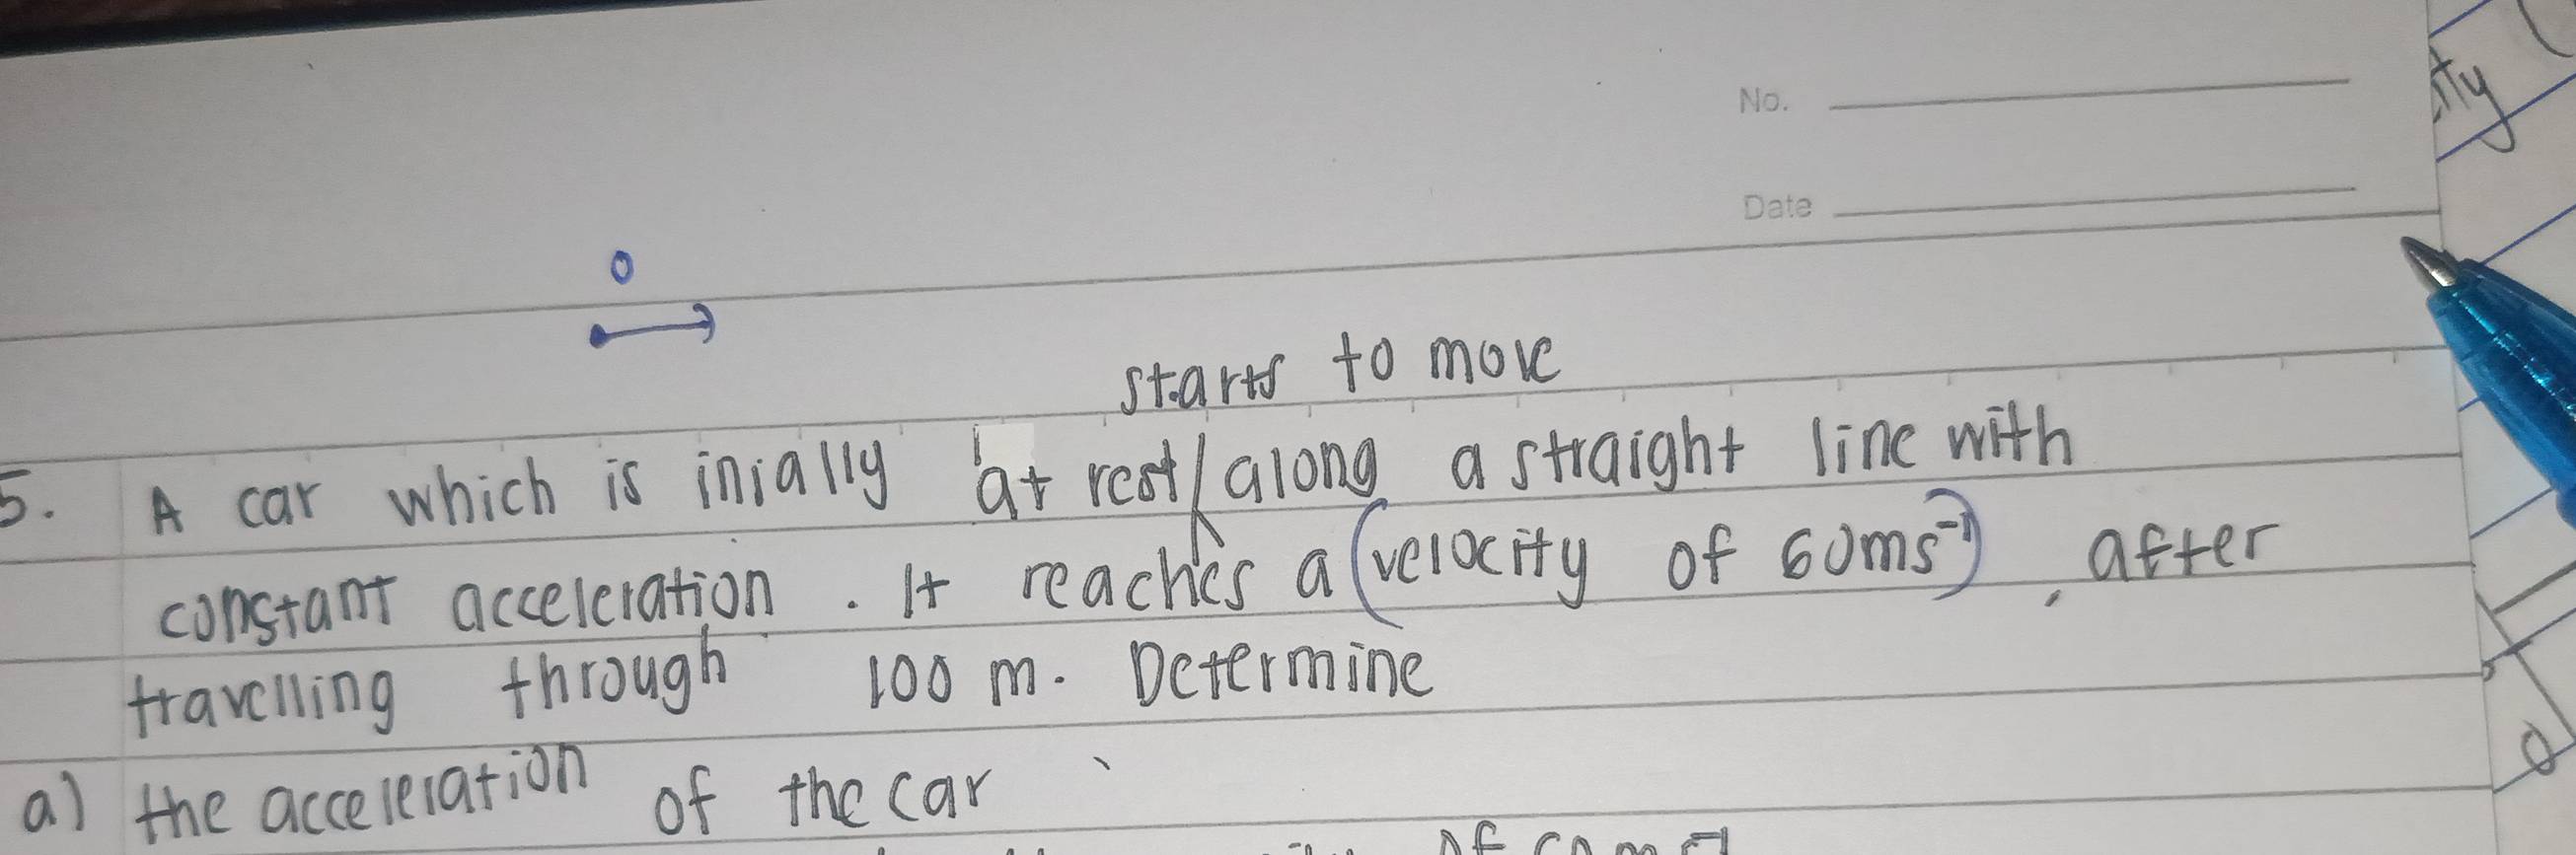 No.
Date
0
starts to move
5. A car which is inially at rest/along a straight line with
constant acceleration. It reaches a (velocity of 60ms⁻¹), after
travelling through 100 m. Determine
a) the acceleration of the car
of